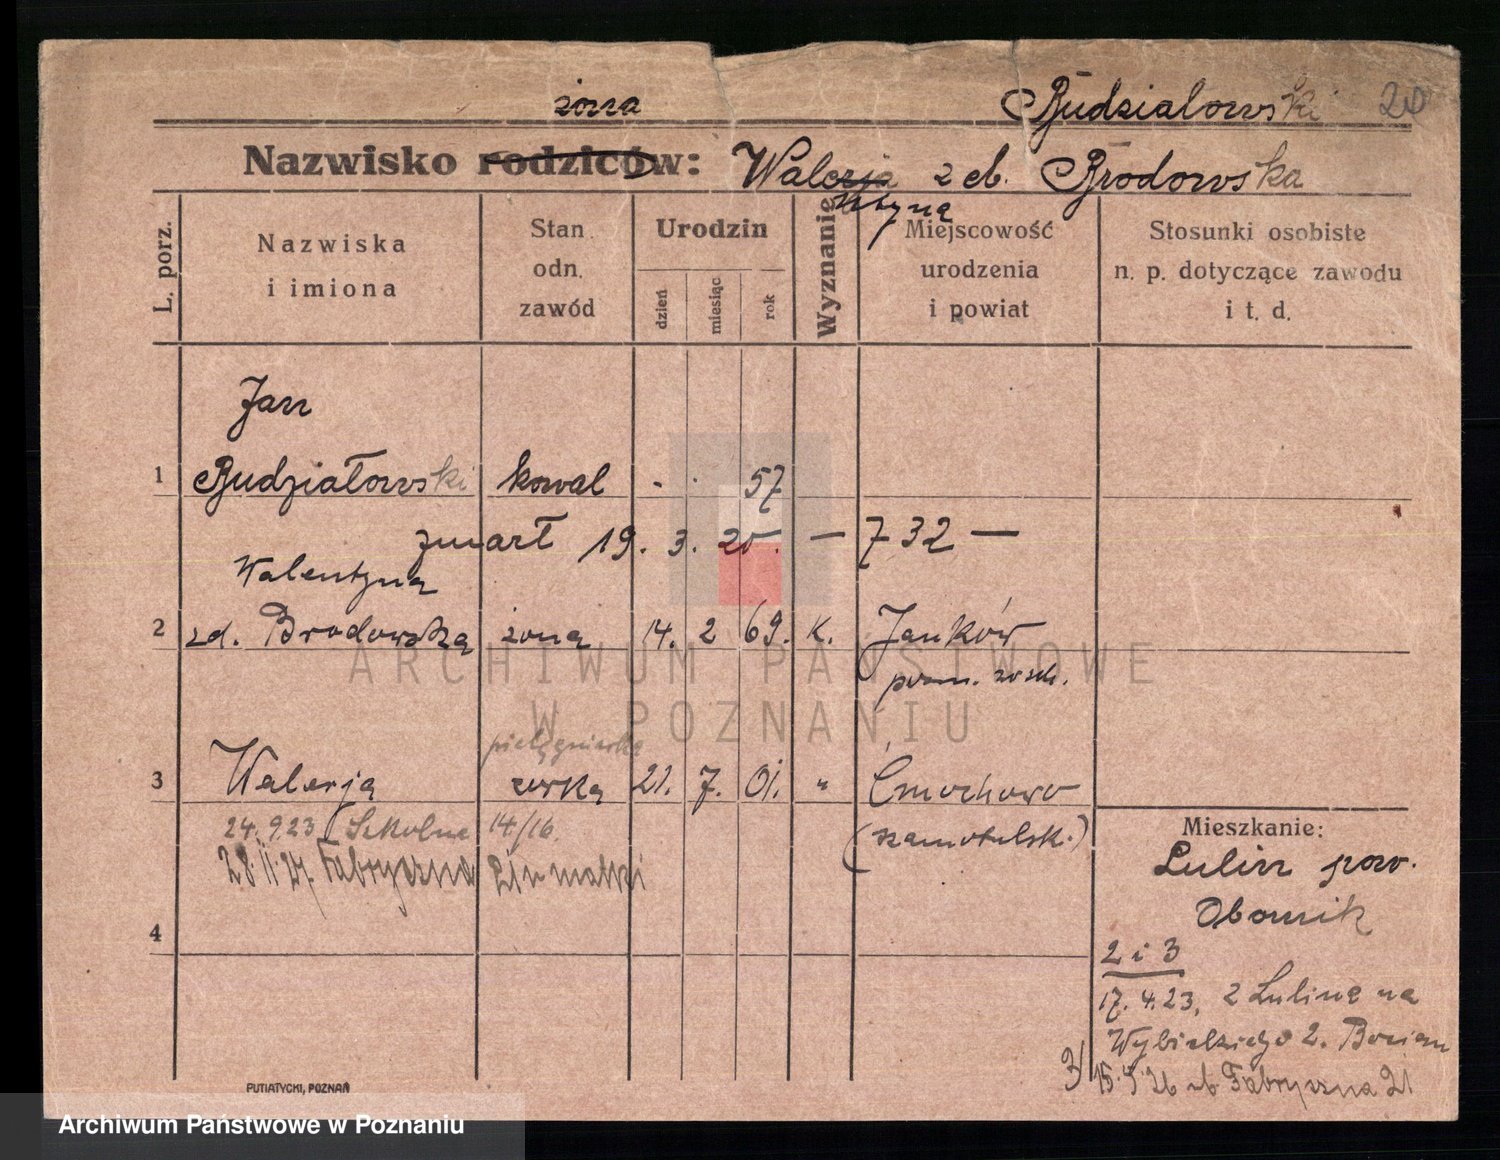 żona Budzialowski 20
Nazwisko rodziców: Waleria z d. Brodowska
ntyna
L. porz.
Nazwiska
i imiona
Stan
odn.
zawód
Urodzin
dzień
miesiąc
rok
Wyznanie
Miejscowość
urodzenia
i powiat
Stosunki osobiste
n. p. dotyczące zawodu
i t. d.
Jan
1 Budziałowski kowal - . 57
zmarł 19. 3. 25. — 732 —
Walentyna
2 zd. Brodowska żona 14. 2 69. k. Janków
pozn. wsch.
pielęgniarka
3 Walerja córka 21. 7. 01. " Ćmochowo
24.9.23 Szkolna 14/16. (szamotulsk.)
28.11.27 Fabryczna 21 n matki
4
Mieszkanie:
Lulin pow.
Obornik
2 i 3
17.4.23, z Lulina na
Wybickiego 2.
3/ 15.5.26 Fabryczna 21
PUTIATYCKI, POZNAŃ
ARCHIWUM PAŃSTWOWE
W POZNANIU
Archiwum Państwowe w Poznaniu